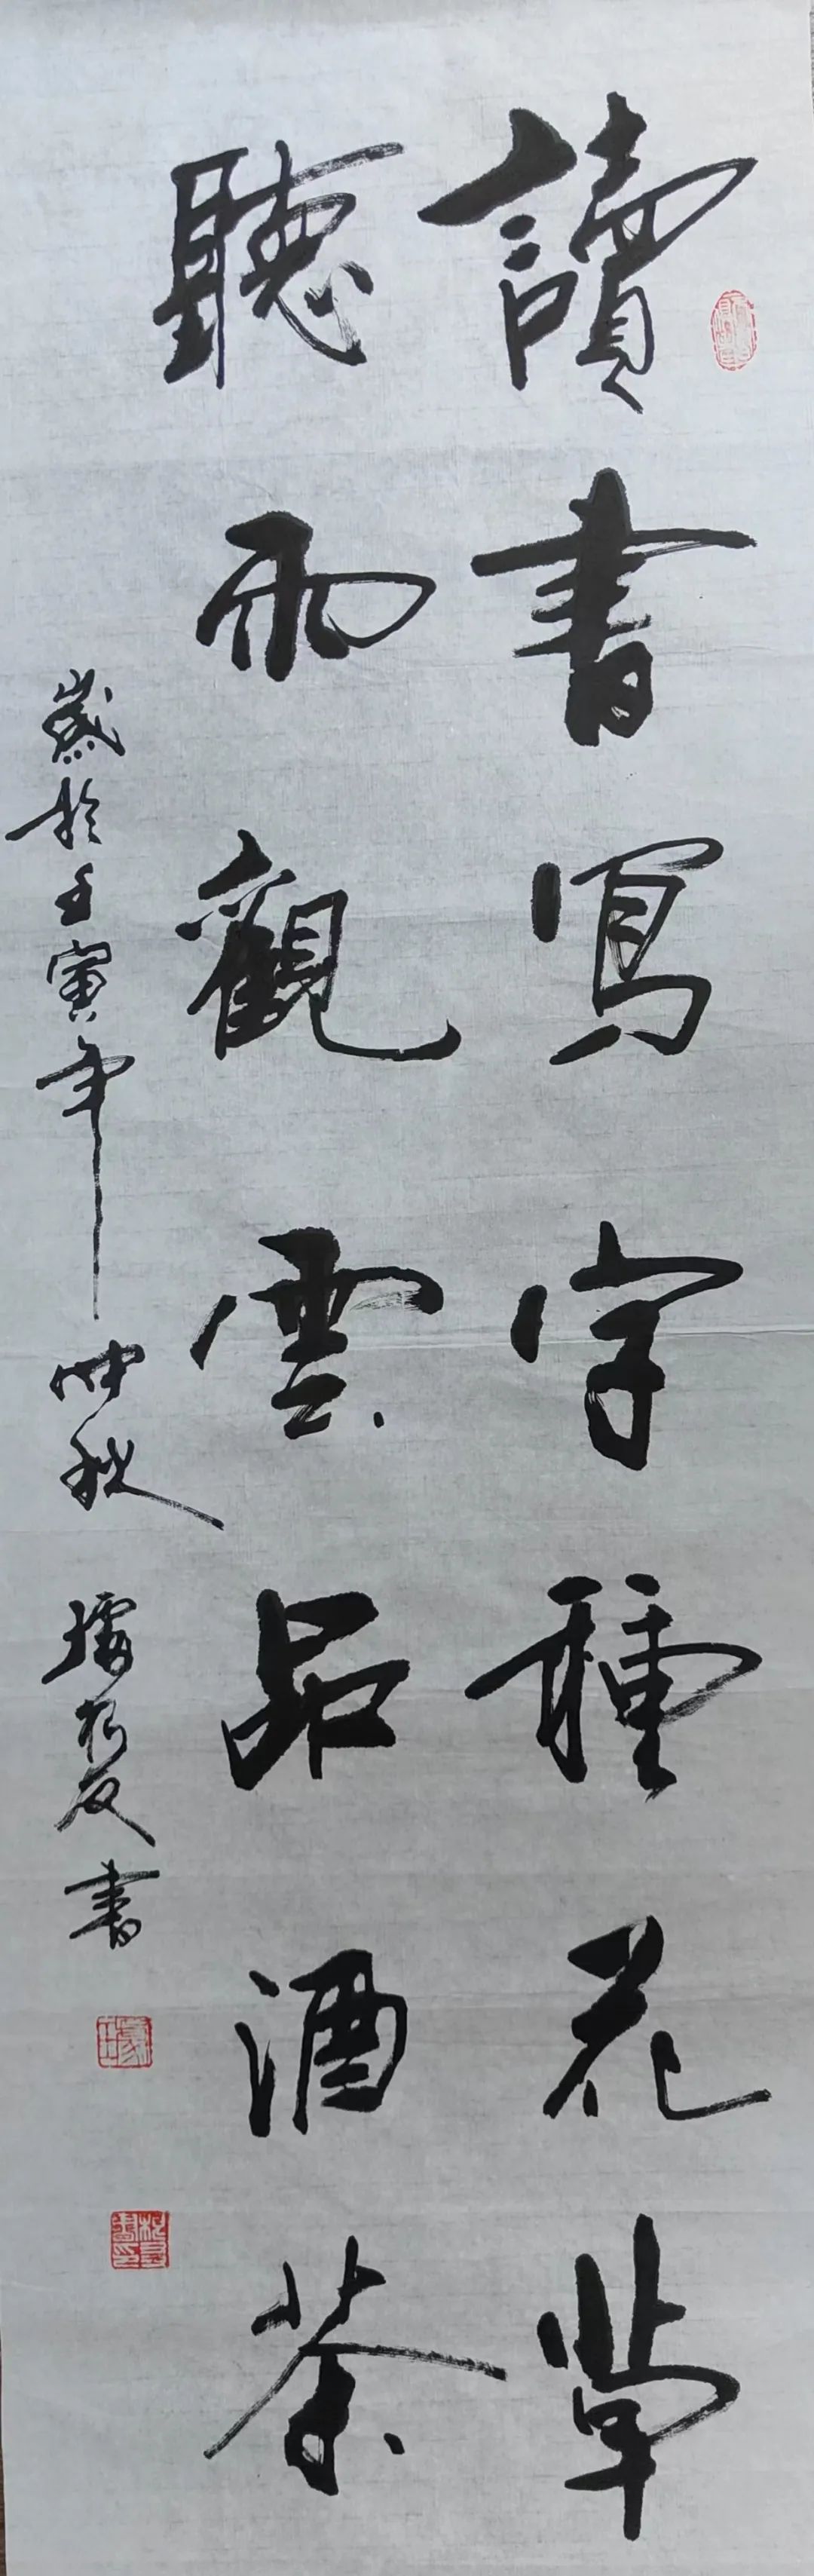 讀書寫字種花草
聽雨觀雲品酒茶
歲於壬寅年仲秋 書